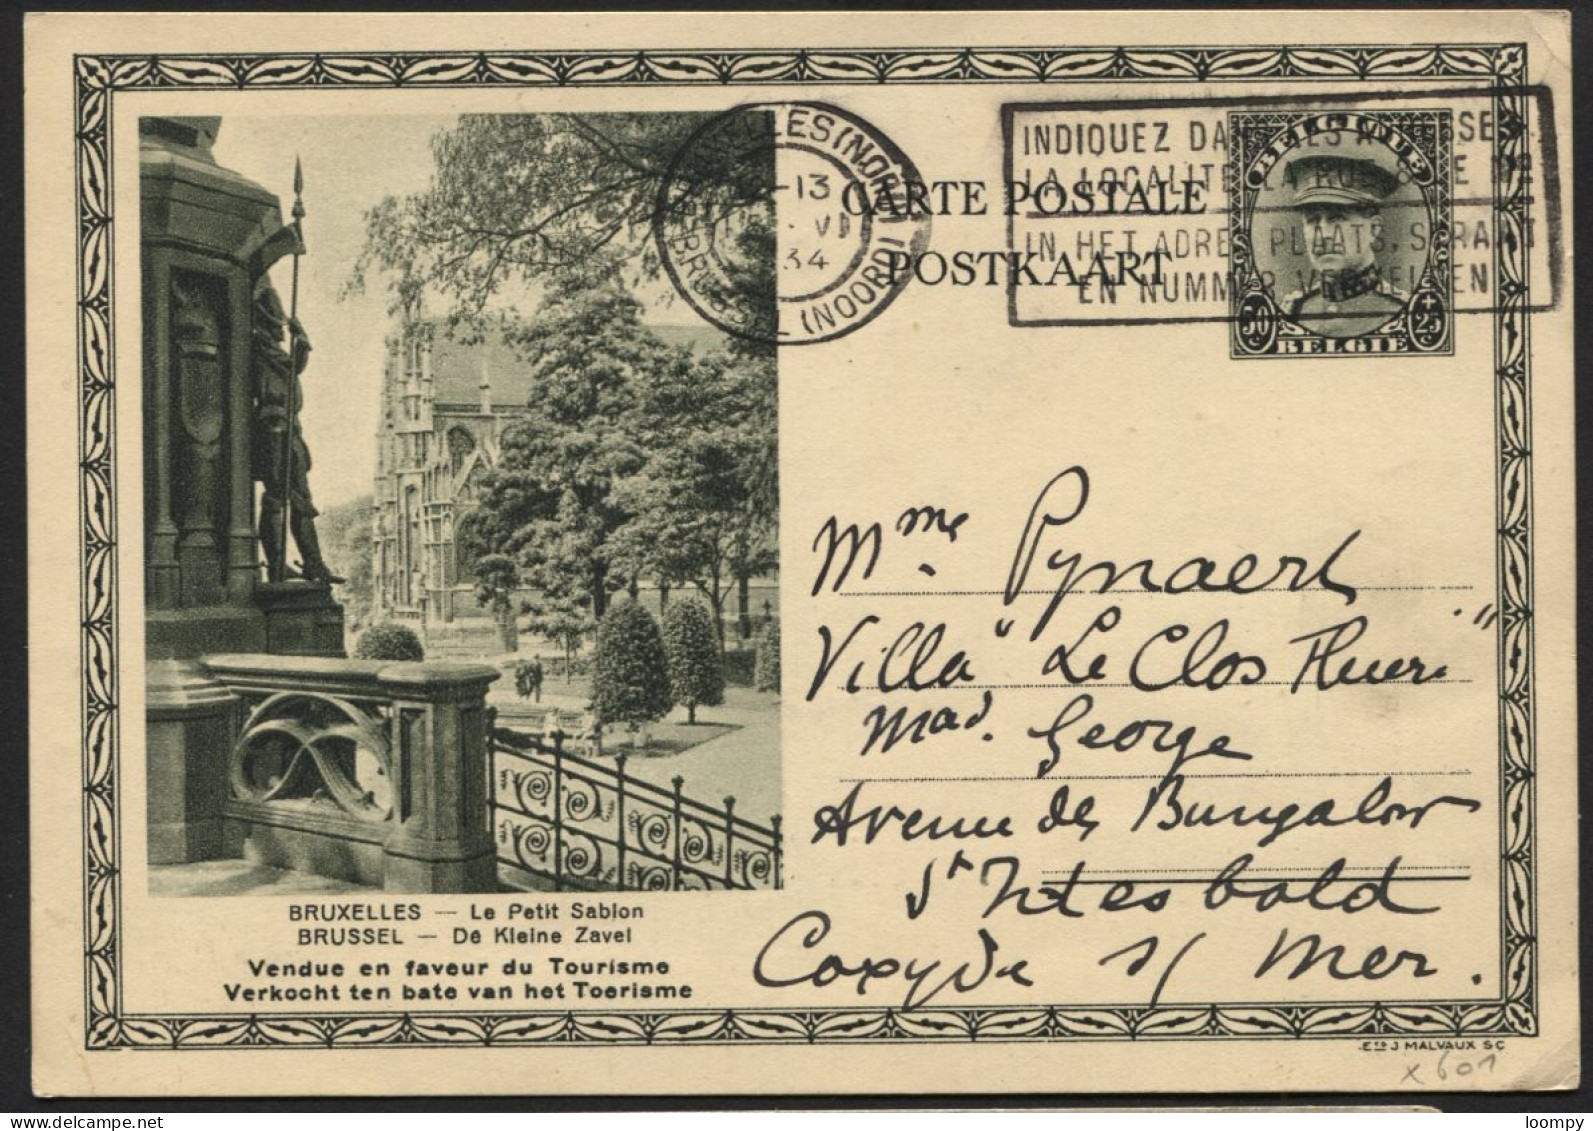 BRUXELLES (NORD)
-13
VI
34
BRUSSEL (NOORD)
INDIQUEZ DANS LES ADRESSES
LA LOCALITE LA RUE & LE No
IN HET ADRES PLAATS, STRAAT
EN NUMMER VERMELDEN
CARTE POSTALE
POSTKAART
BELGIQUE
50c +25c
BELGIE
Mme. Pynaert
Villa "Le Clos Fleuri"
Mad. George
Avenue des Bungalow
St Idesbald
Coxyde s/ Mer.
BRUXELLES — Le Petit Sablon
BRUSSEL — De Kleine Zavel
Vendue en faveur du Tourisme
Verkocht ten bate van het Toerisme
Ets J MALVAUX SC
x 601
loompy